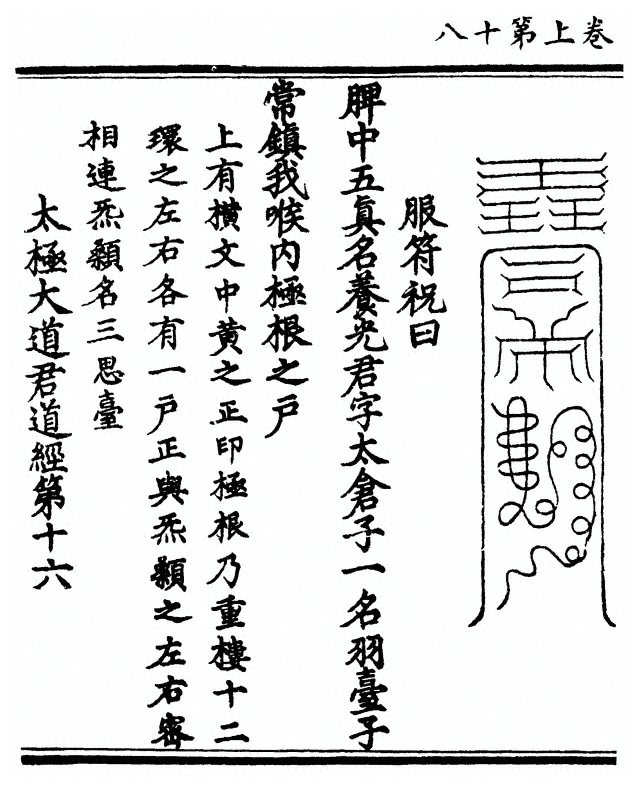 卷上第十八
服符祝曰
脾中五眞名養光君字太倉子一名羽臺子
常鎮我喉内極根之戶
上有横文中黄之正印極根乃重樓十二
環之左右各有一戶正與炁顙之左右密
相連炁顙名三思臺
太極大道君道經第十六